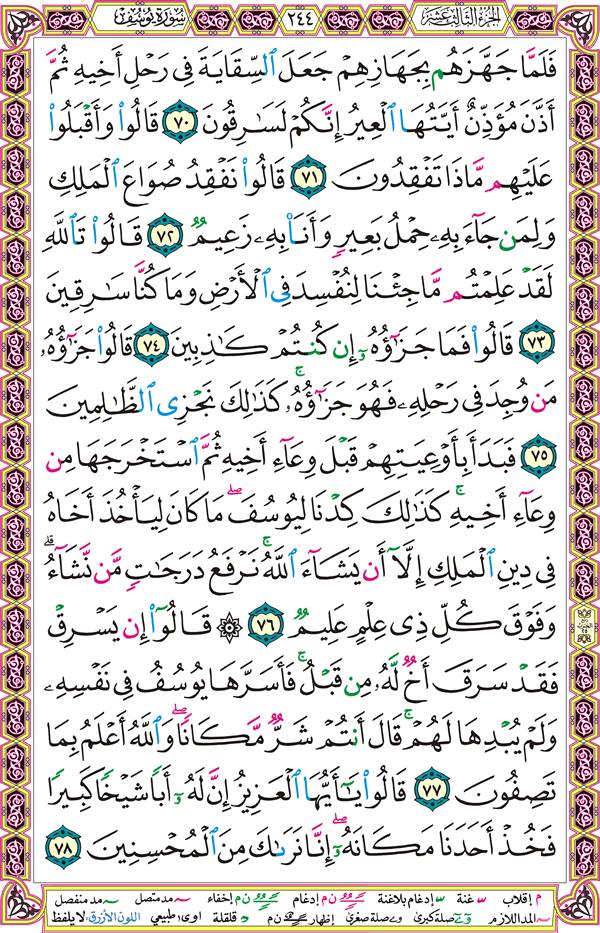 سُورَةُ يُوسُفَ ٢٤٤ الجُزْءُ الثَّالِثَ عَشَرَ
فَلَمَّا جَهَّزَهُم بِجَهَازِهِمْ جَعَلَ ٱلسِّقَايَةَ فِى رَحْلِ أَخِيهِ ثُمَّ
أَذَّنَ مُؤَذِّنٌ أَيَّتُهَا ٱلْعِيرُ إِنَّكُمْ لَسَـٰرِقُونَ ٧٠ قَالُوا۟ وَأَقْبَلُوا۟
عَلَيْهِم مَّاذَا تَفْقِدُونَ ٧١ قَالُوا۟ نَفْقِدُ صُوَاعَ ٱلْمَلِكِ
وَلِمَن جَآءَ بِهِۦ حِمْلُ بَعِيرٍ وَأَنَا۠ بِهِۦ زَعِيمٌ ٧٢ قَالُوا۟ تَٱللَّهِ
لَقَدْ عَلِمْتُم مَّا جِئْنَا لِنُفْسِدَ فِى ٱلْأَرْضِ وَمَا كُنَّا سَـٰرِقِينَ
٧٣ قَالُوا۟ فَمَا جَزَٰٓؤُهُۥٓ إِن كُنتُمْ كَـٰذِبِينَ ٧٤ قَالُوا۟ جَزَٰٓؤُهُۥ
مَن وُجِدَ فِى رَحْلِهِۦ فَهُوَ جَزَٰٓؤُهُۥ ۚ كَذَٰلِكَ نَجْزِى ٱلظَّـٰلِمِينَ
٧٥ فَبَدَأَ بِأَوْعِيَتِهِمْ قَبْلَ وِعَآءِ أَخِيهِ ثُمَّ ٱسْتَخْرَجَهَا مِن
وِعَآءِ أَخِيهِ ۚ كَذَٰلِكَ كِدْنَا لِيُوسُفَ ۖ مَا كَانَ لِيَأْخُذَ أَخَاهُ
فِى دِينِ ٱلْمَلِكِ إِلَّآ أَن يَشَآءَ ٱللَّهُ ۚ نَرْفَعُ دَرَجَـٰتٍ مَّن نَّشَآءُ ۗ
وَفَوْقَ كُلِّ ذِى عِلْمٍ عَلِيمٌ ٧٦ ۞ قَالُوٓا۟ إِن يَسْرِقْ
فَقَدْ سَرَقَ أَخٌ لَّهُۥ مِن قَبْلُ ۚ فَأَسَرَّهَا يُوسُفُ فِى نَفْسِهِۦ
وَلَمْ يُبْدِهَا لَهُمْ ۚ قَالَ أَنتُمْ شَرٌّ مَّكَانًا ۖ وَٱللَّهُ أَعْلَمُ بِمَا
تَصِفُونَ ٧٧ قَالُوا۟ يَـٰٓأَيُّهَا ٱلْعَزِيزُ إِنَّ لَهُۥٓ أَبًا شَيْخًا كَبِيرًا
فَخُذْ أَحَدَنَا مَكَانَهُۥٓ ۖ إِنَّا نَرَىٰكَ مِنَ ٱلْمُحْسِنِينَ ٧٨
م إقلاب غنة إدغام بلاغنة ن م إدغام إخفاء مد متصل مد منفصل
المد اللازم صلة كبرى صلة صغرى إظهار ن م قلقلة اوى طبيعي اللون الأزرق لا يلفظ